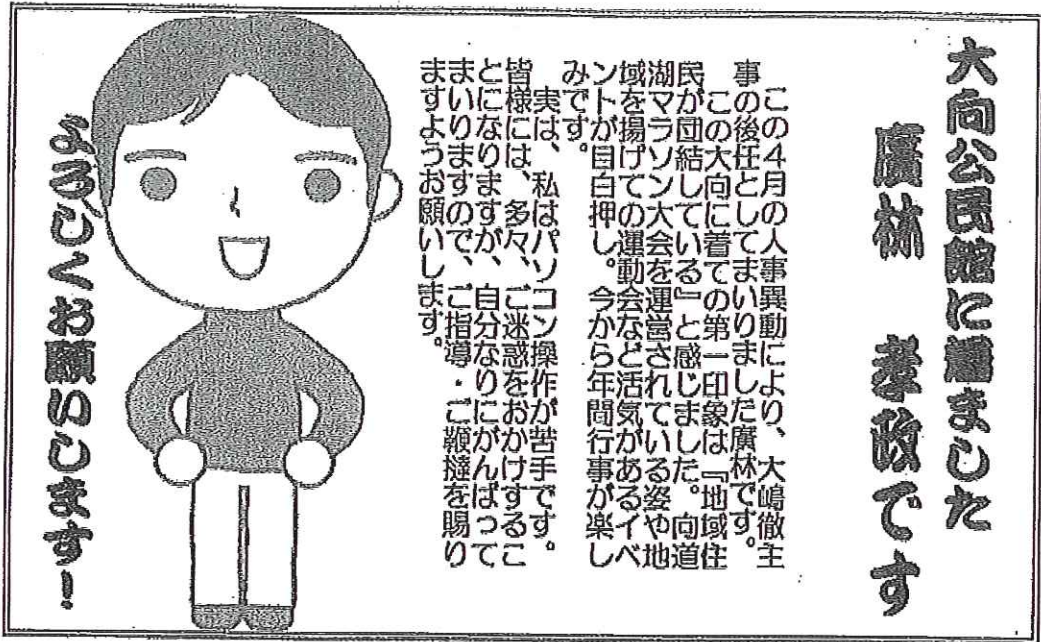 大向公民館に着ました
廣林 孝政です
この4月の人事異動により、大嶋徹主
事の後任としてまいりました廣林です。
この大向に着ての第一印象は『地域住
民が団結している』と感じました。向道
湖マラソン大会を運営されている姿や地
域を揚げての運動会など活気があるイベ
ントが目白押し。今から年間行事が楽し
みです。
実は、私はパソコン操作が苦手です。
皆様には、多々、ご迷惑をおかけするこ
とになりますが、自分なりにがんばって
まいりますので、ご指導・ご鞭撻を賜り
ますようお願いします。
よろしくお願いします！